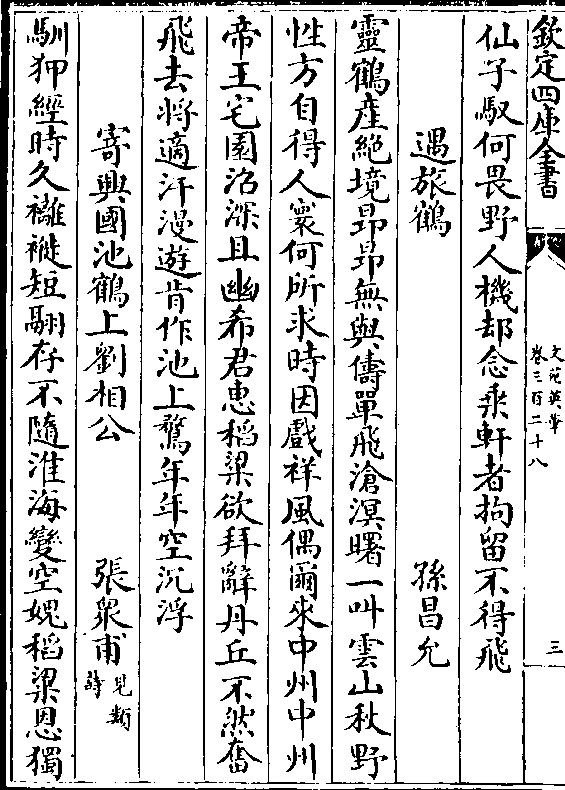 欽定四庫全書
文苑英華
卷三百二十八
三
仙子馭何畏野人機却念乘軒者拘留不得飛
遇旅鶴
孫昌允
靈鶴產絶境昂昂無與儔單飛滄溟曙一叫雲山秋野
性方自得人寰何所求時因戲祥風偶爾來中州中州
帝王宅園沼深且幽希君惠稻粱欲拜辭丹丘不然奮
飛去将適汗漫遊肯作池上鶩年年空沉浮
寄興國池鶴上劉相公
張衆甫
見類
詩
馴狎經時久襳褷短翮存不隨淮海變空媿稻粱恩獨